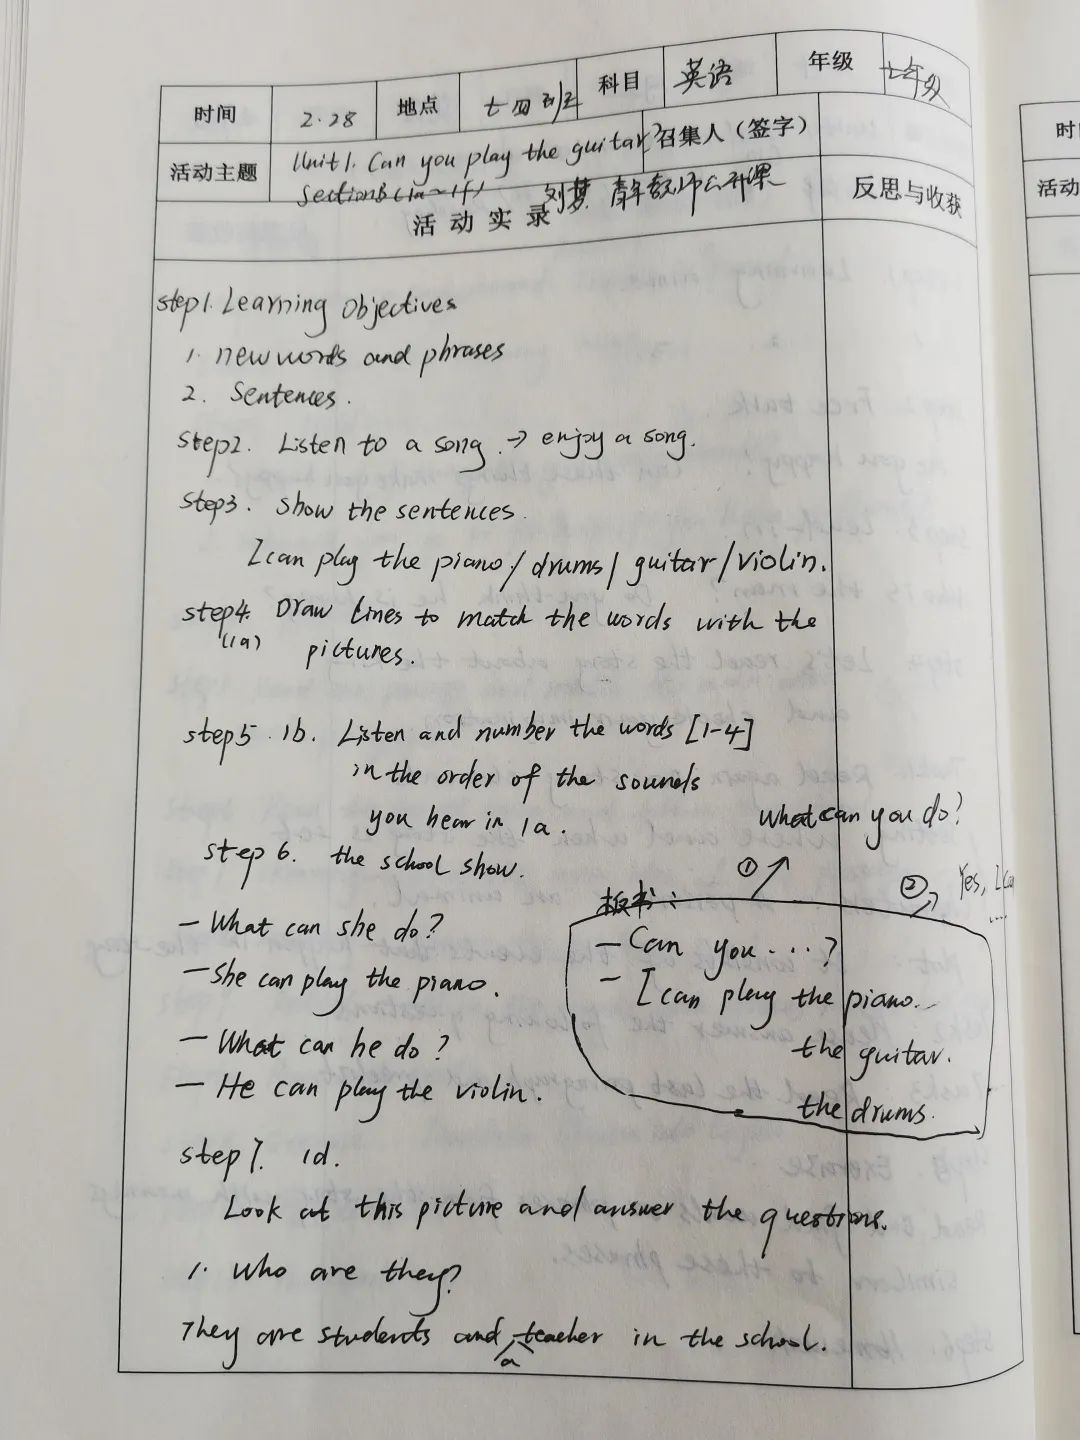 时间 2.28 地点 七四班 科目 英语 年级 七年级
活动主题 Unit1. Can you play the guitar? 召集人（签字）
SectionB(1a~1f) 刘梦 青年教师公开课
活动实录 反思与收获
step1. Learning Objectives
1. new words and phrases
2. Sentences.
step2. Listen to a song. → enjoy a song.
step3. show the sentences.
I can play the piano/drums/guitar/violin.
step4. Draw lines to match the words with the
(1a) pictures.
step5. 1b. Listen and number the words [1-4]
in the order of the sounds
you hear in 1a.
What can you do?
step 6. the school show.
① ② Yes, I can
....
板书：
— What can she do?
— She can play the piano.
— What can he do?
— He can play the violin.
— Can you ...?
— I can play the piano.
the guitar.
the drums.
step7. 1d.
Look at this picture and answer the questions.
1. Who are they?
They are students and teacher in the school.
a
时
活动